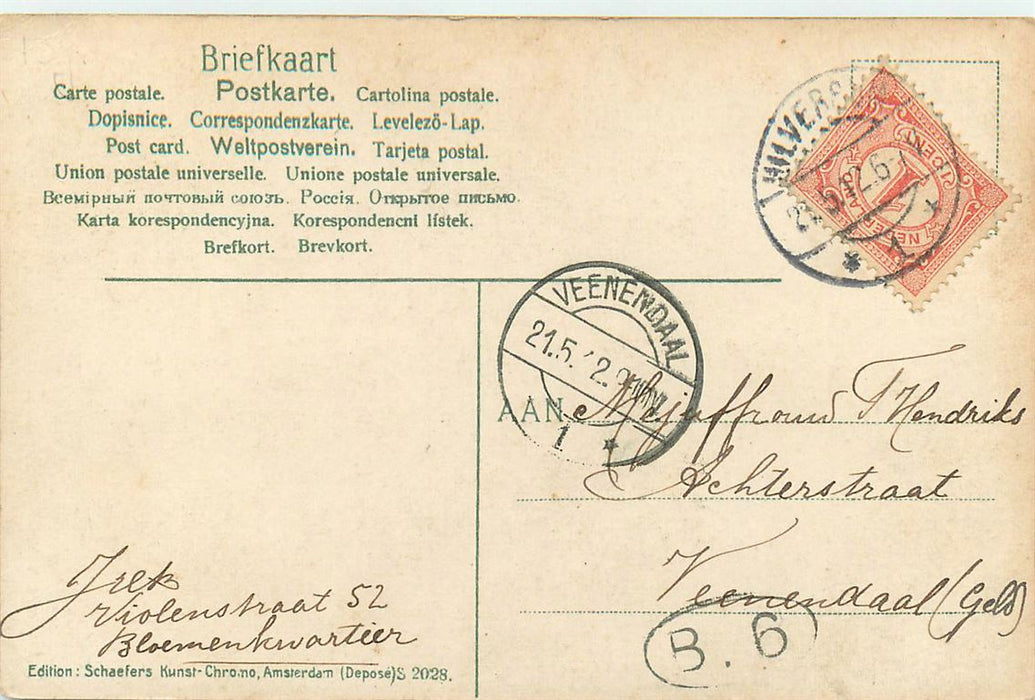 Briefkaart
Carte postale. Postkarte. Cartolina postale.
Dopisnice. Correspondenzkarte. Levelező-Lap.
Post card. Weltpostverein. Tarjeta postal.
Union postale universelle. Unione postale universale.
Всемірный почтовый союзъ. Россія. Открытое письмо.
Karta korespondencyjna. Korespondencni lístek.
Brefkort. Brevkort.
HILVERS
1
VEENENDAAL
21.5.12.
1
AAN Mejuffrouw T Hendriks
Achterstraat
Veenendaal (Geld)
B. 6
Violenstraat 52
Bloemenkwartier
Edition: Schaefers Kunst-Chromo, Amsterdam (Deposé) S 2028.